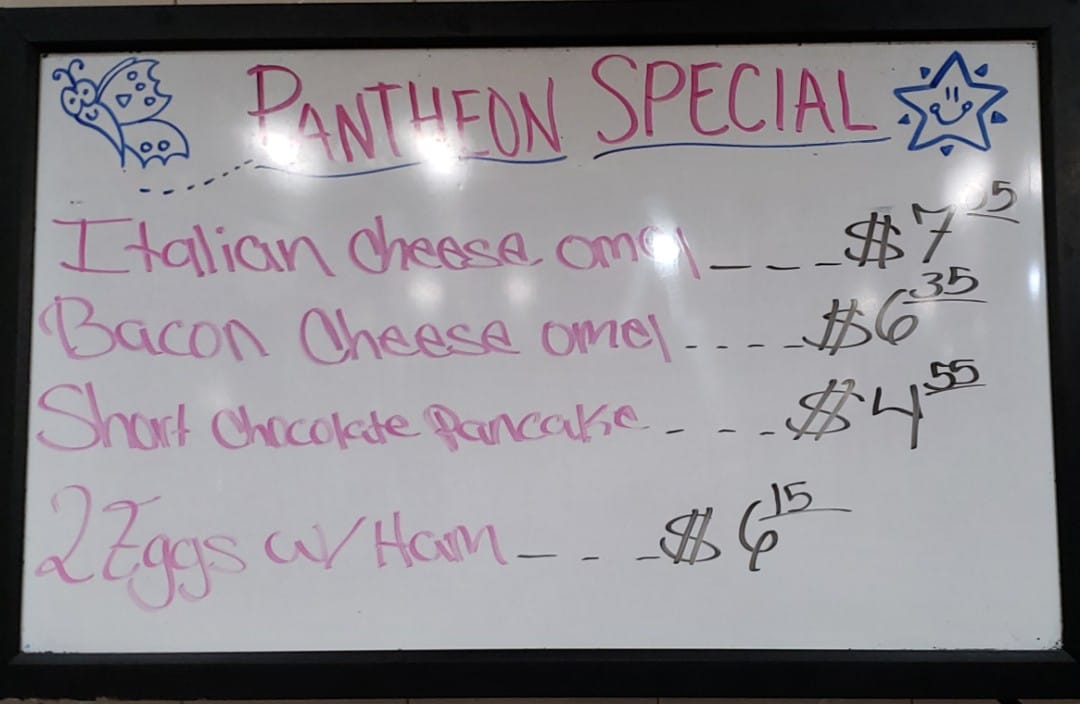 PANTHEON SPECIAL
Italian cheese omel---$7
Bacon Cheese omel----$6 35
Short Chocolate Pancake---$4 55
2 Eggs w/ Ham---$6 15